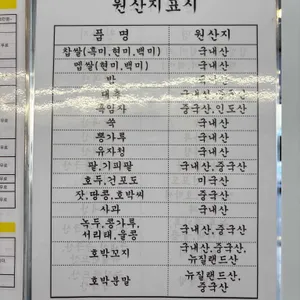 원산지표시
품 명 원산지
찹쌀(흑미,현미,백미) 국내산
멥쌀(현미,백미) 국내산
밤
대추
흑임자 중국산,인도산
쑥 국내산
콩가루 국내산
유자청 국내산
팥,기피팥 국내산,중국산
호두,건포도 미국산
잣,땅콩,호박씨 중국산
사과 국내산
녹두,콩가루,
서리태,울콩 국내산,중국산
호박꼬지 국내산,중국산,
뉴질랜드산
호박분말 뉴질랜드산,
중국산